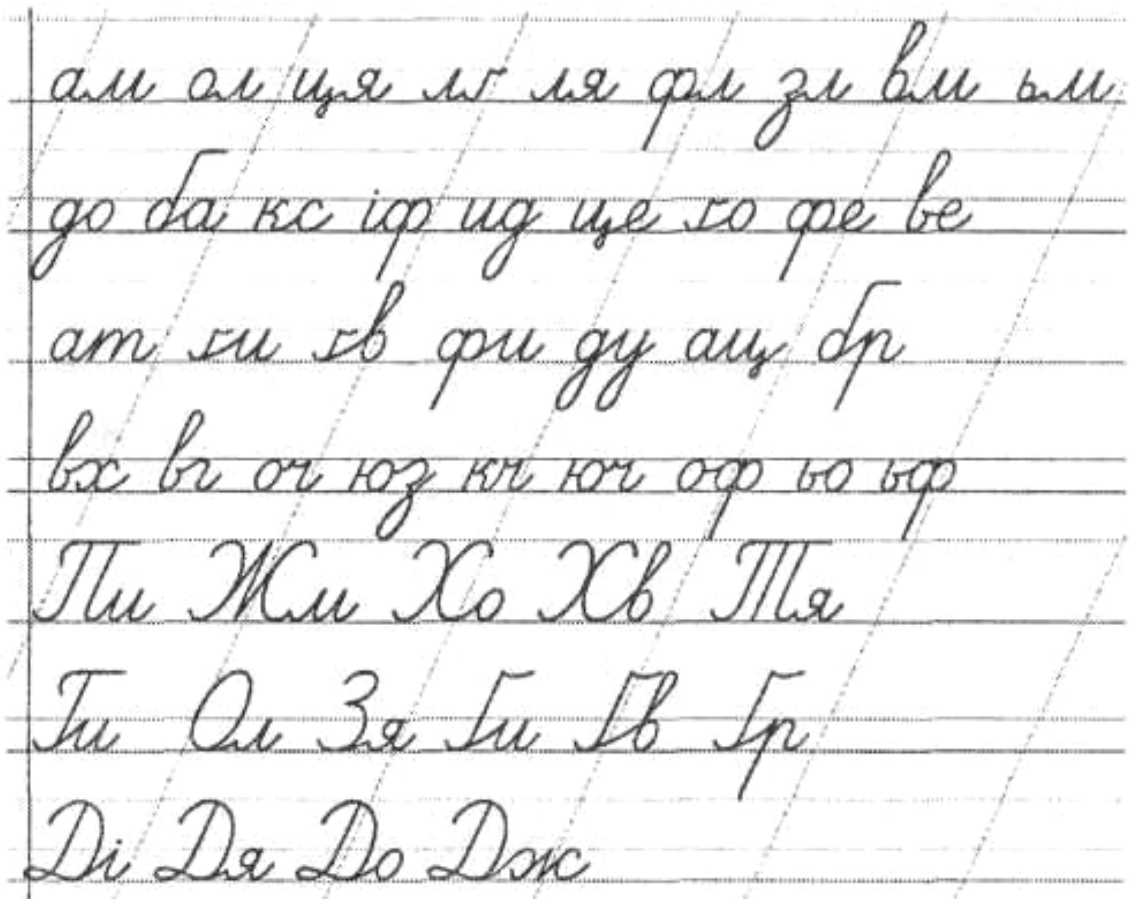 ам ол ця лґ ля фл зл вм ьм
до ба кс іф ид це ґо фе ве
ат ґи ґв фи ду ац бр
вх вг оч юз кч юч оф ьо ьф
Пи Жм Хо Хв Тя
Ги Ол Зя Ґи Ґв Ґр
Ді Дя До Дж